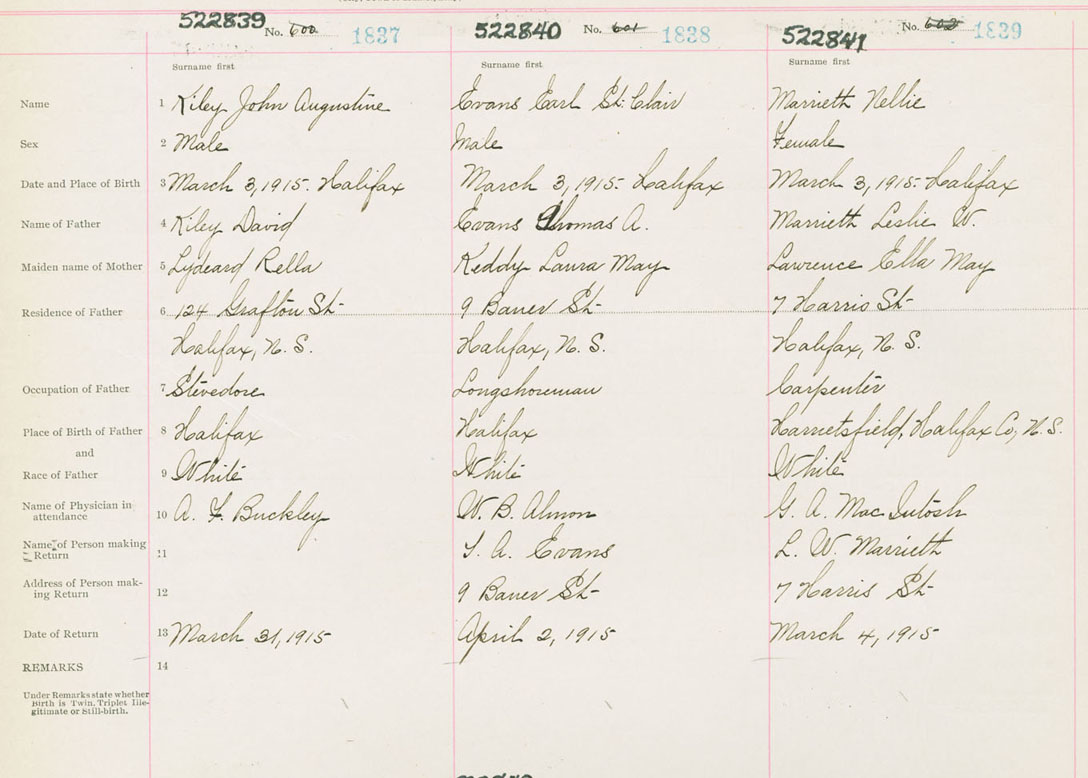 522839 No. 600 1837 522840 No. 601 1838 522841 No. 602 1839
Surname first Surname first Surname first
Name 1 Kiley John Augustine Evans Earl St. Clair Marrieth Nellie
Sex 2 Male Male Female
Date and Place of Birth 3 March 3, 1915. Halifax March 3, 1915- Halifax March 3, 1915- Halifax
Name of Father 4 Kiley David Evans Thomas A. Marrieth Leslie W.
Maiden name of Mother 5 Lydeard Rella Keddy Laura May Lawrence Ella May
Residence of Father 6 124 Grafton St- 9 Bauer St- 7 Harris St-
Halifax, N. S. Halifax, N. S. Halifax, N. S.
Occupation of Father 7 Stevedore Longshoreman Carpenter
Place of Birth of Father 8 Halifax Halifax Harrietsfield, Halifax Co, N. S.
and
Race of Father 9 White White White
Name of Physician in
attendance 10 A. F. Buckley W. B. Almon G. A. MacIntosh
Name of Person making
Return 11 T. A. Evans L. W. Marrieth
Address of Person mak-
ing Return 12 9 Bauer St- 7 Harris St-
Date of Return 13 March 31, 1915 April 2, 1915 March 4, 1915
REMARKS 14
Under Remarks state whether
Birth is Twin, Triplet Ille-
gitimate or Still-birth.